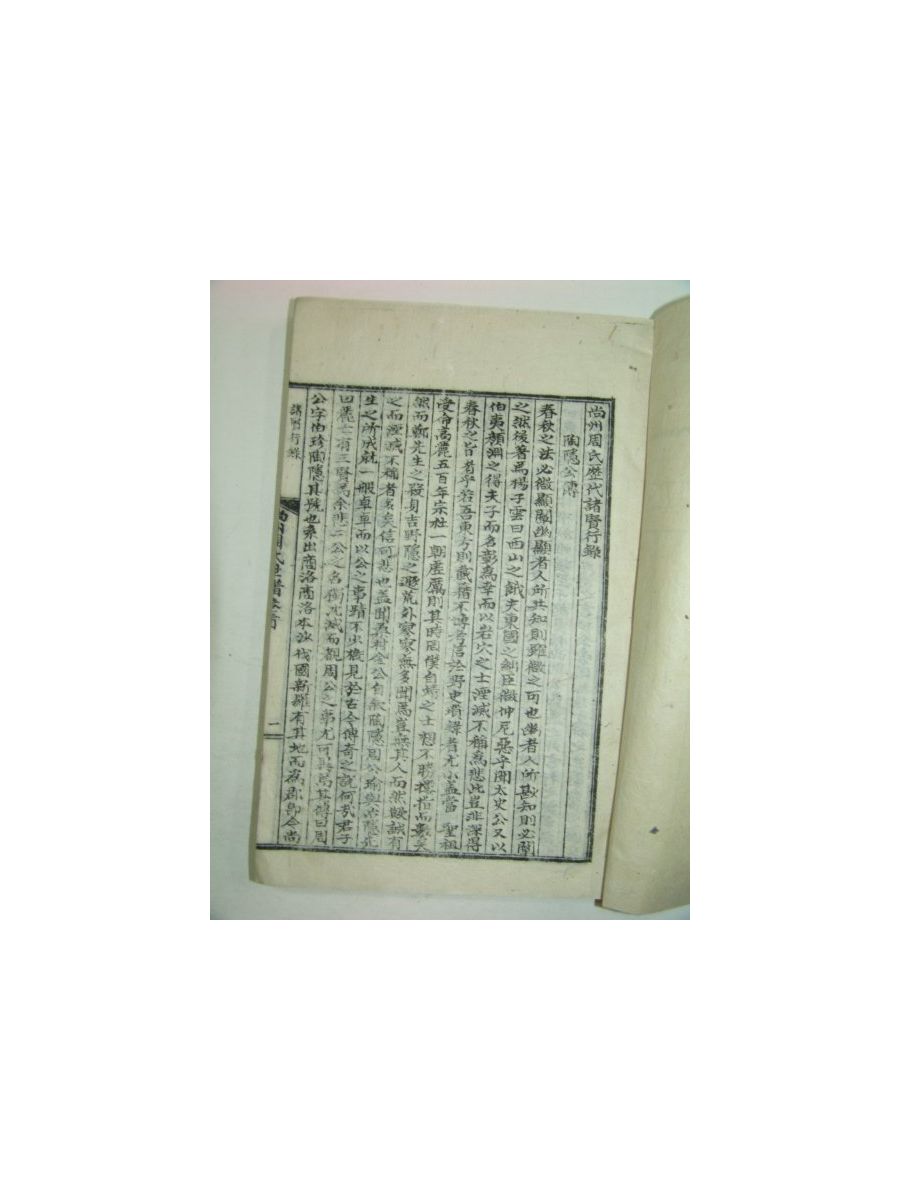 尙州周氏歷代諸賢行錄
陶隱公傳
春秋之法必微顯闡幽顯者人所共知則雖微之可也幽者人所尠知則必闡
之然後著焉楊子雲曰西山之餓夫東國之絀臣微仲尼惡乎聞太史公又以
伯夷顏淵之得夫子而名彰爲幸而以岩穴之士湮滅不稱爲悲此豈非深得
春秋之旨者乎若吾東方則載籍不博名居於野史者尤小盖當 聖祖
受命高麗五百年宗社一朝虛厲則其時罔僕自靖之士想不勝摟指而
然而鄭先生之殺身吉野隱之遯荒外寥寥無多聞焉豈無其人而然歟誠有
之而湮滅不稱者多矣信可悲也盖聞 村金公自 陶隱周公瑜與冶隱先
生之所成就一般卓卓而以公之事蹟不少槪見於古今傳奇之說何哉君子
曰麗亡有三賢焉余悲二公之名獨 滅而觀周公之事尤可異焉其傳曰周
公字伯珍陶隱其號也系出商洛商洛本沙伐國新羅有其地而爲郡郡今尙
諸賢行錄
尙州周氏世譜卷首
一